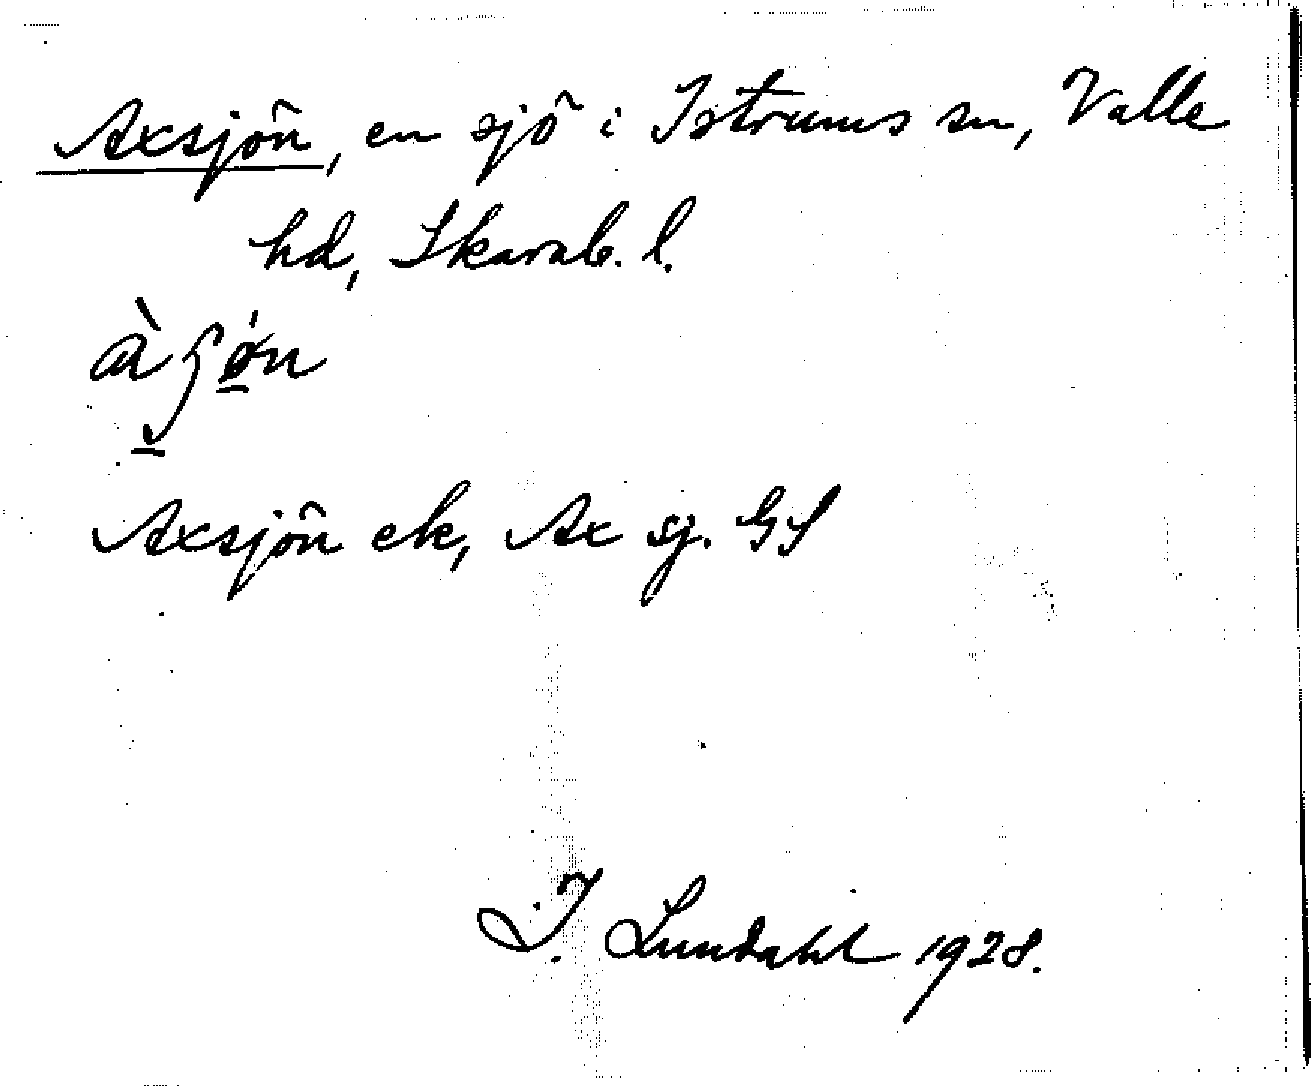 Axsjön, en sjö i Istrums sn, Valle
hd, Skarab. l.
Axsjön ek, Ax sj. GS
I. Lundahl 1928.